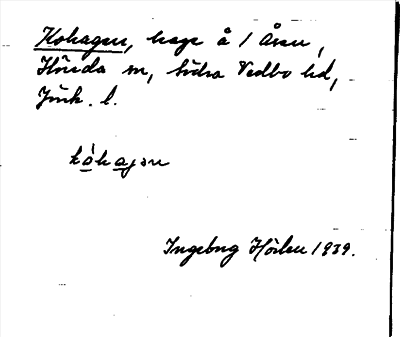 Kohagen, hage å 1 Åsen,
Höreda sn, Södra Vedbo hd,
Jönk. l.
kóhagən
Ingeborg Hörlen 1939.